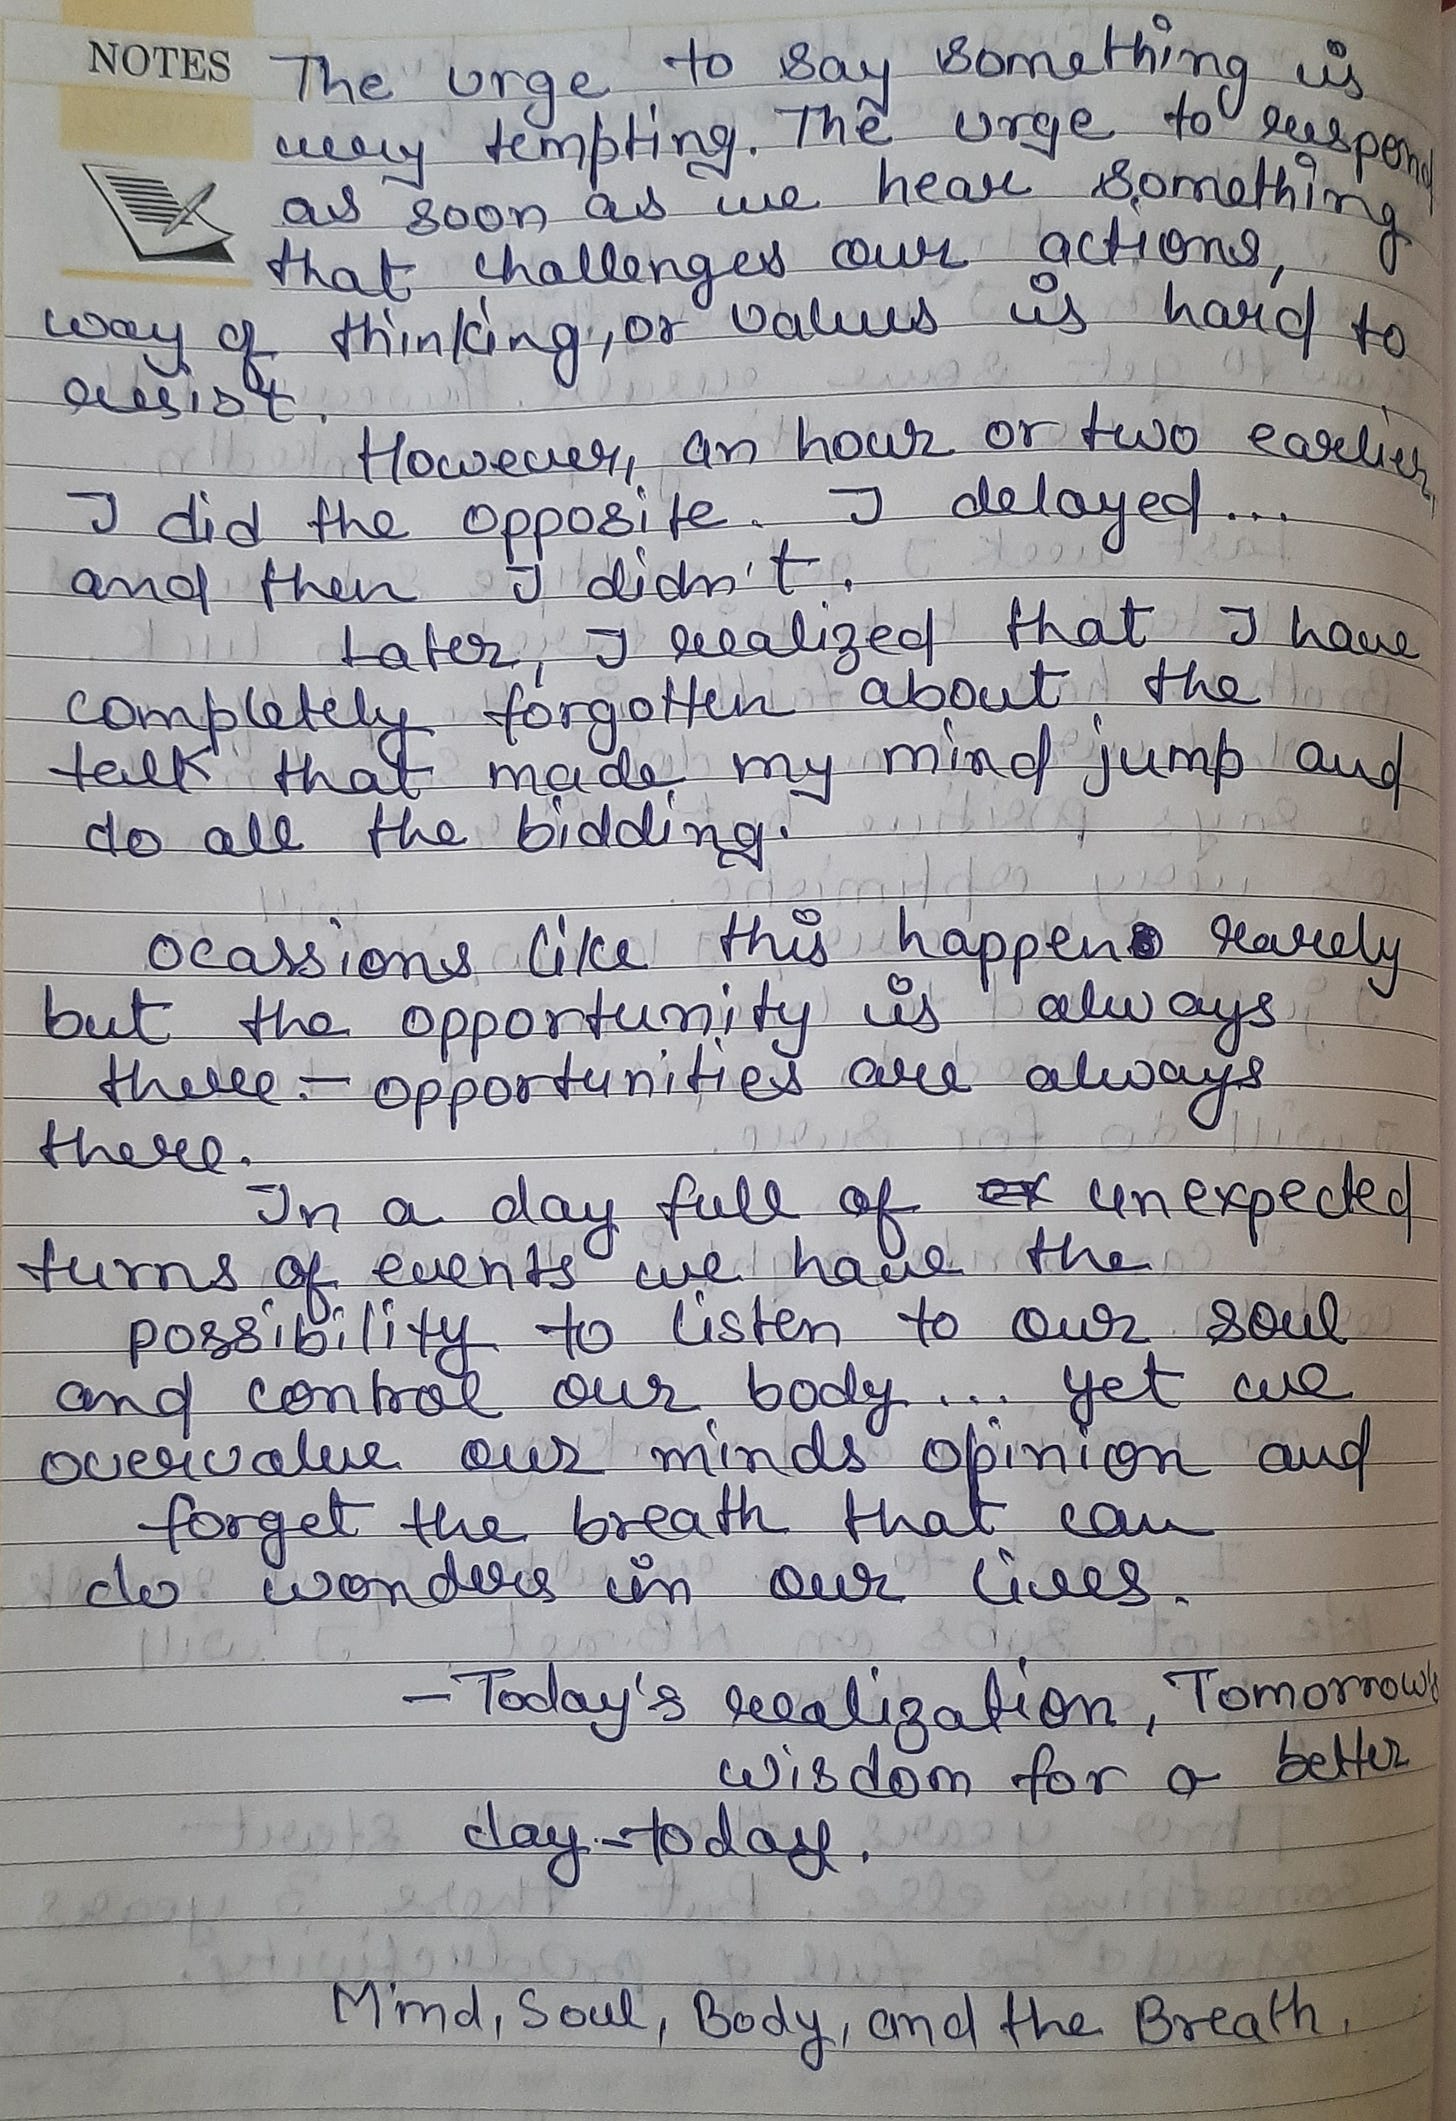 NOTES
The urge to say something is
very tempting. The urge to respond
as soon as we hear something
that challenges our actions,
way of thinking, or values is hard to
resist.
However, an hour or two earlier,
I did the opposite. I delayed...
and then I didn't.
Later, I realized that I have
completely forgotten about the
talk that made my mind jump and
do all the bidding.
ocassions like this happens rarely
but the opportunity is always
there - opportunities are always
there.
In a day full of unexpected
turns of events we have the
possibility to listen to our soul
and control our body... yet we
overvalue our minds opinion and
forget the breath that can
do wonders in our lives.
- Today's realization, Tomorrow's
wisdom for a better
day-today.
Mind, Soul, Body, and the Breath.